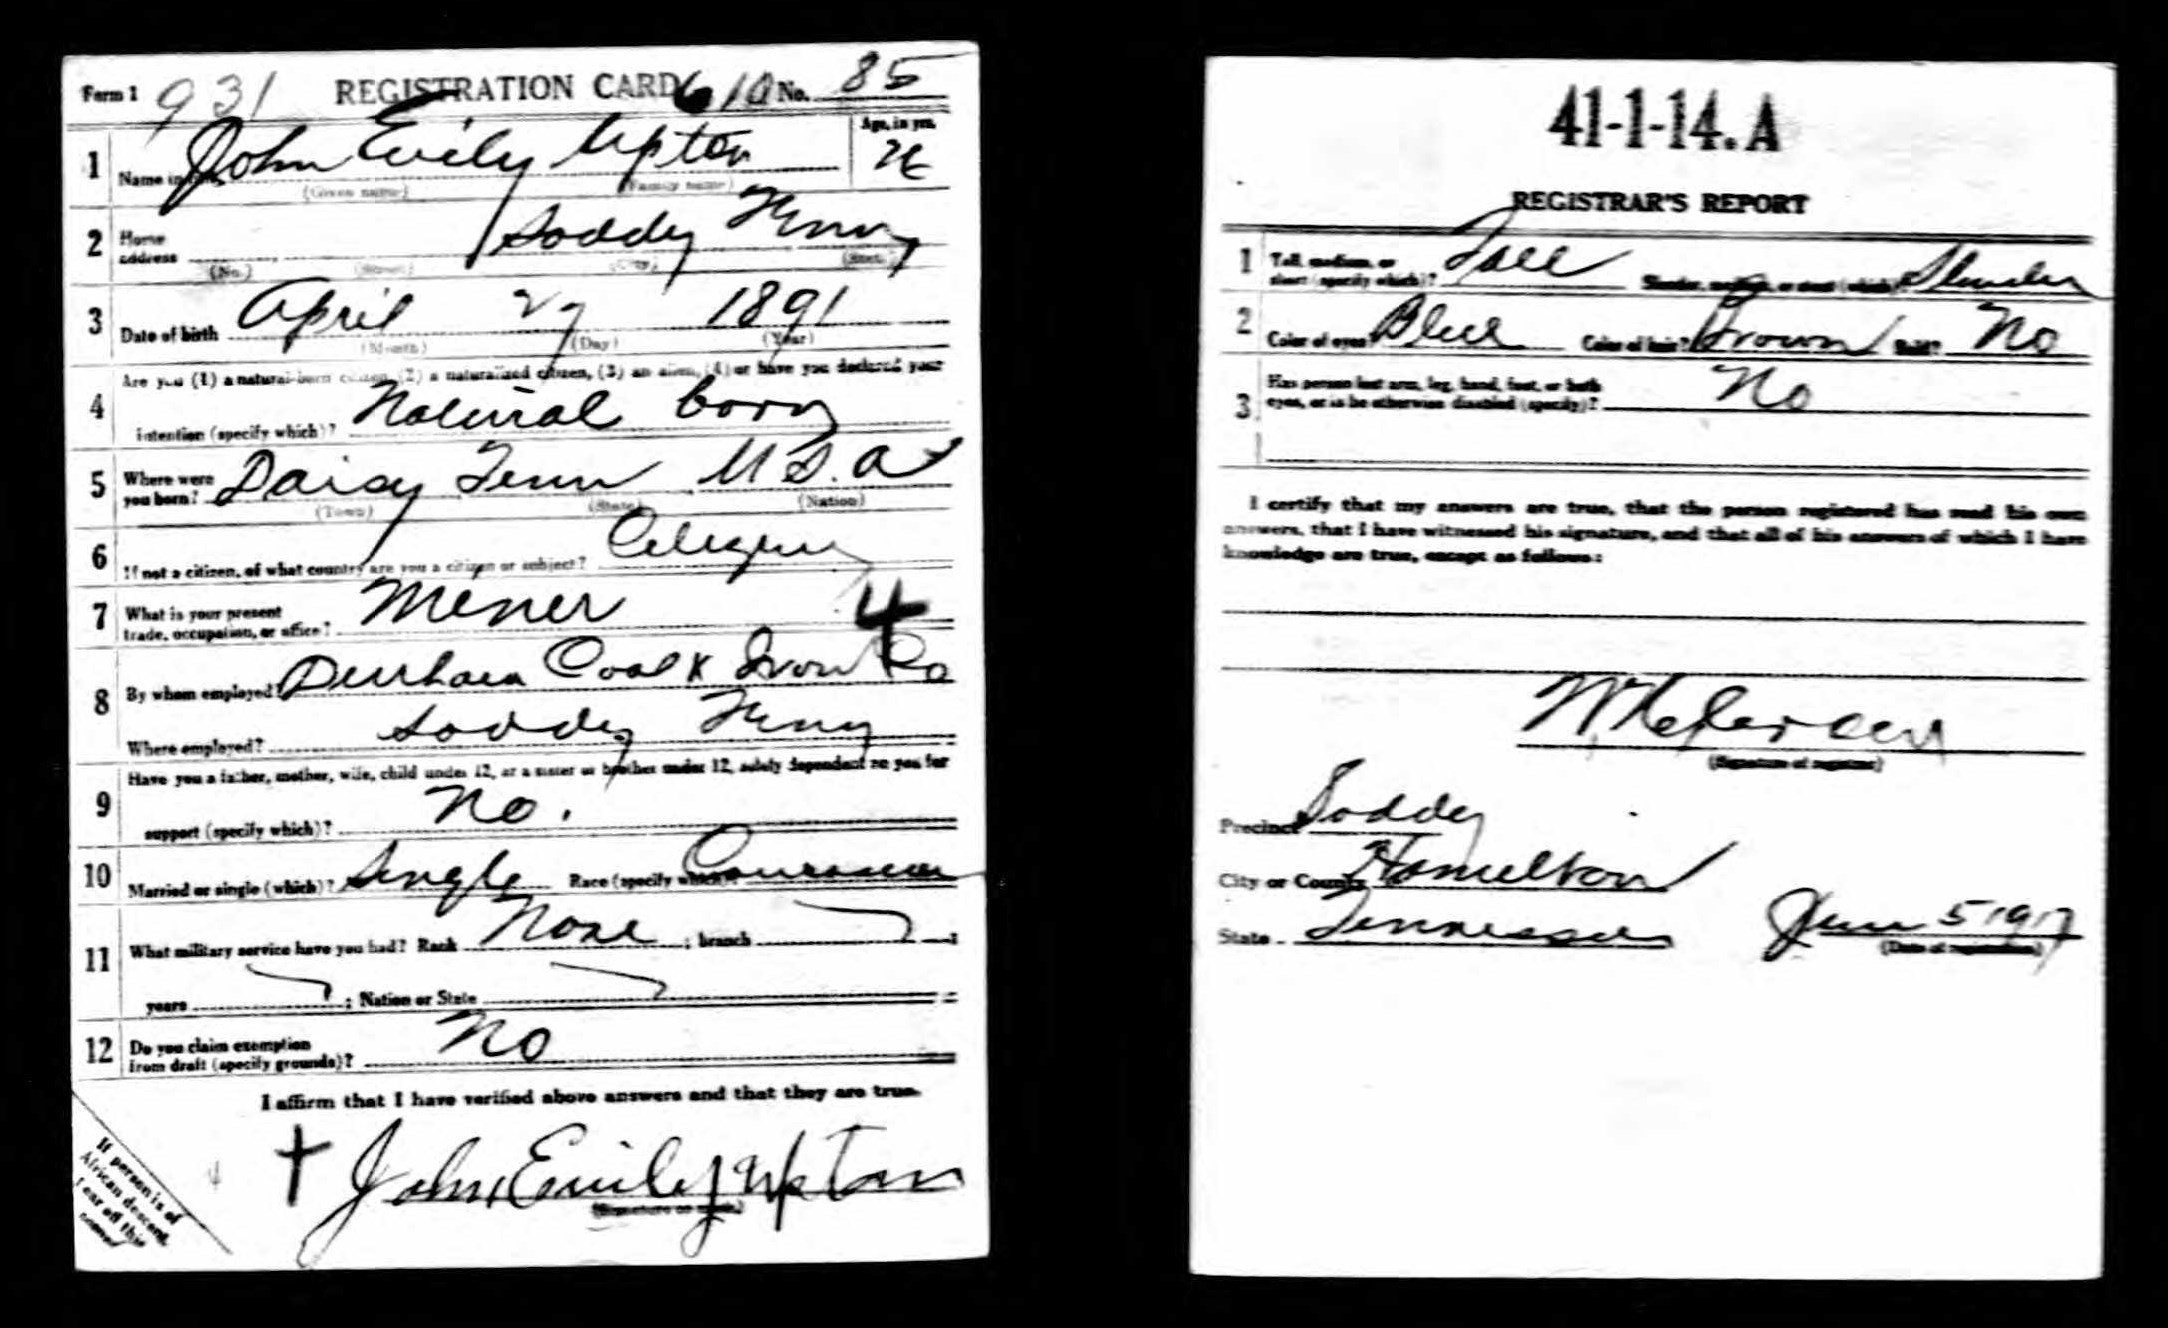 Form 1 931 REGISTRATION CARD 610 No. 85
1 Name in John Emily Upton Age, in yrs. 26
(Given name) (Family name)
2 Home address Soddy Tenn
(No.) (Street) (City) (State)
3 Date of birth April 27 1891
(Month) (Day) (Year)
Are you (1) a natural-born citizen, (2) a naturalized citizen, (3) an alien, (4) or have you declared your
4 intention (specify which)? Natural born
5 Where were you born? Daisy Tenn U.S.A
(Town) (State) (Nation)
6 If not a citizen, of what country are you a citizen or subject?
7 What is your present trade, occupation, or office? Miner 4
8 By whom employed? Durham Coal & Iron Co
Where employed? Soddy Tenn
Have you a father, mother, wife, child under 12, or a sister or brother under 12, solely dependent on you for
9 support (specify which)? No.
10 Married or single (which)? Single Race (specify which)? Caucasian
11 What military service have you had? Rank None ; branch ;
years ; Nation or State
12 Do you claim exemption from draft (specify grounds)? No
I affirm that I have verified above answers and that they are true.
† John Emily Upton
(Signature or mark)
If person is of
African descent,
tear off this
corner
41-1-14. A
REGISTRAR'S REPORT
1 Tall, medium, or short (specify which)? Tall Slender, medium, or stout (which)? Slender
2 Color of eyes? Blue Color of hair? Brown Bald? No
3 Has person lost arm, leg, hand, foot, or both eyes, or is he otherwise disabled (specify)? No
I certify that my answers are true, that the person registered has read his own
answers, that I have witnessed his signature, and that all of his answers of which I have
knowledge are true, except as follows:
(Signature of registrar)
Precinct Soddy
City or County Hamilton
State Tennessee June 5 1917
(Date of registration)